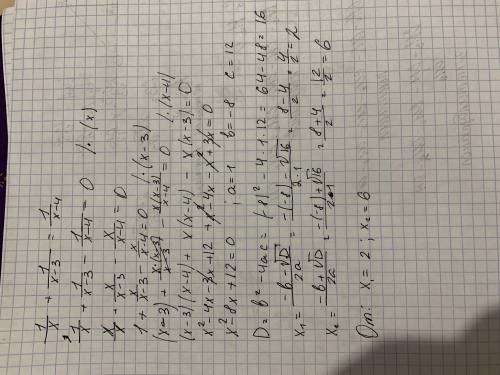 1/x + 1/(x-3) = 1/(x-4)
1/x + 1/(x-3) - 1/(x-4) = 0 /·(x)
x/x + x/(x-3) - x/(x-4) = 0
1 + x/(x-3) - x/(x-4) = 0 /·(x-3)
(x-3) + x·(x-3)/(x-3) - x(x-3)/(x-4) = 0 /·(x-4)
(x-3)(x-4) + x(x-4) - x(x-3) = 0
x² - 4x - 3x + 12 + x² - 4x - x² + 3x = 0
x² - 8x + 12 = 0 ; a = 1 b = -8 c = 12
D = b² - 4ac = (-8)² - 4·1·12 = 64 - 48 = 16
x₁ = (-b - √D)/2a = (-(-8) - √16)/2·1 = (8 - 4)/2 = 4/2 = 2
x₂ = (-b + √D)/2a = (-(-8) + √16)/2·1 = (8 + 4)/2 = 12/2 = 6
От: x₁ = 2 ; x₂ = 6